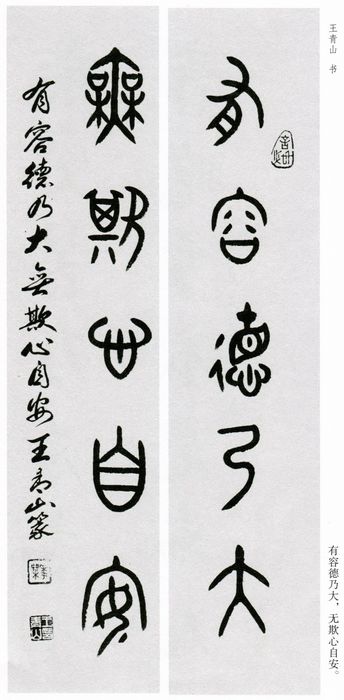 王青山 书
有容德乃大
無欺心自安
有容德乃大無欺心自安王青山篆
有容德乃大，无欺心自安。